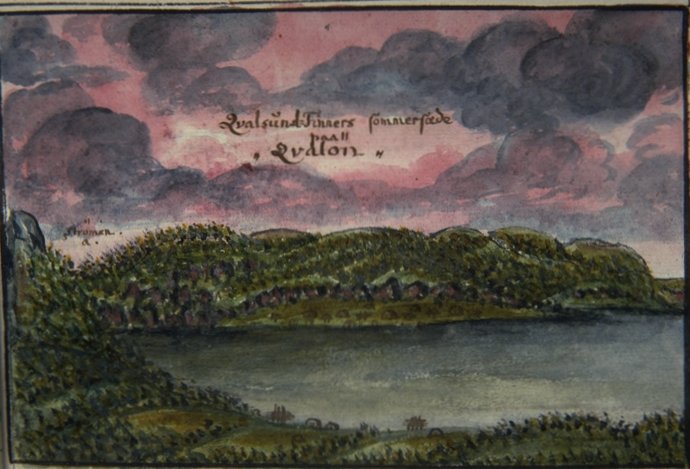 Qvalsund-Finners sommersæde
paa
„ Qvalön „
Strömen
a.